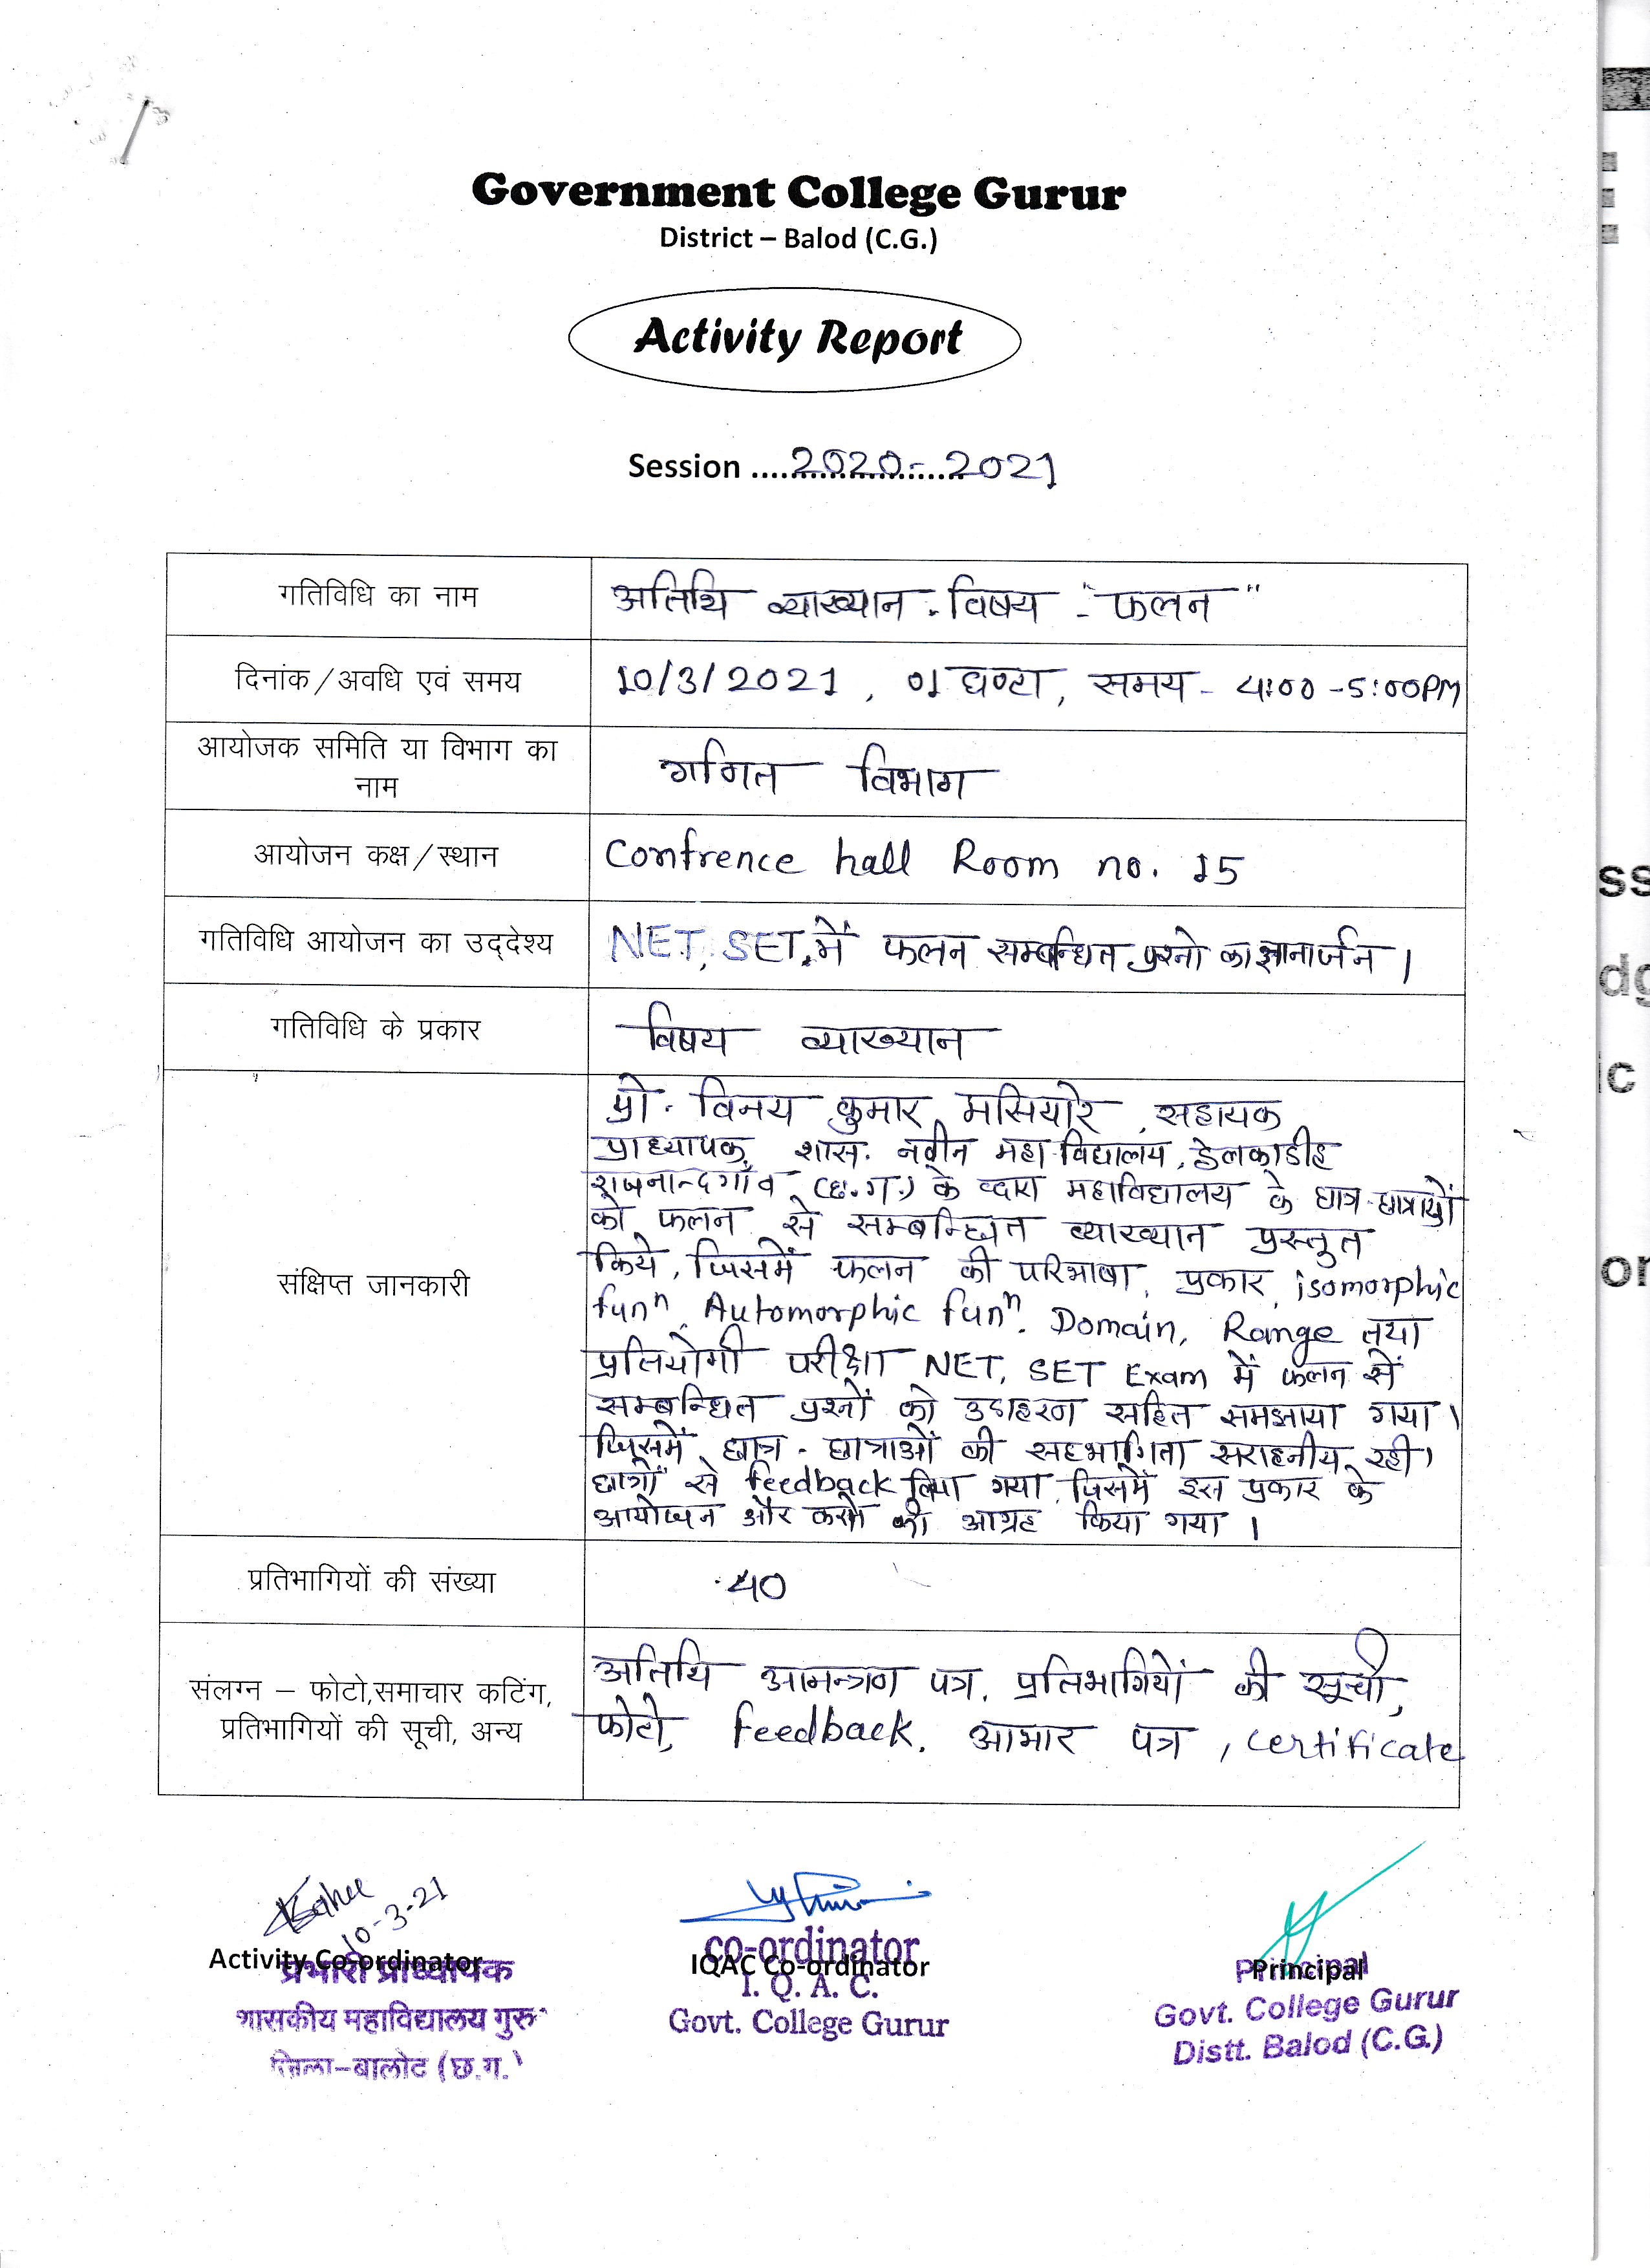 Government College Gurur
District – Balod (C.G.)
Activity Report
Session ....2020-2021
गतिविधि का नाम
अतिथि व्याख्यान - विषय - "फलन"
दिनांक/अवधि एवं समय
10/3/2021 , 01 घण्टा, समय - 4:00 -5:00PM
आयोजक समिति या विभाग का
नाम
गणित विभाग
आयोजन कक्ष/स्थान
Confrence hall Room no. 15
गतिविधि आयोजन का उद्देश्य
NET, SET, में फलन सम्बन्धित प्रश्नो का ज्ञानार्जन।
गतिविधि के प्रकार
विषय व्याख्यान
संक्षिप्त जानकारी
प्रो. विनय कुमार मसियारे, सहायक
प्राध्यापक, शास. नवीन महाविद्यालय,
राजनान्दगाँव (छ.ग.) के द्वारा महाविद्यालय के छात्र-छात्राओं
को फलन से सम्बन्धित व्याख्यान प्रस्तुत
किये, जिसमें फलन की परिभाषा, प्रकार, isomorphic
funⁿ, Automorphic funⁿ. Domain, Range तथा
प्रतियोगी परीक्षा NET, SET Exam में फलन से
सम्बन्धित प्रश्नों को उदाहरण सहित समझाया गया।
जिसमें छात्र - छात्राओं की सहभागिता सराहनीय रही।
छात्रों से feedback लिया गया, जिसमें इस प्रकार के
आयोजन और करने की आग्रह किया गया।
प्रतिभागियों की संख्या
40
संलग्न – फोटो,समाचार कटिंग,
प्रतिभागियों की सूची, अन्य
अतिथि आमन्त्रण पत्र, प्रतिभागियों की सूची,
फोटो, feedback, आभार पत्र, certificate
10-3-21
Activity Co-ordinator
प्रभारी प्राध्यापक
शासकीय महाविद्यालय गुरूर
जिला-बालोद (छ.ग.)
co-ordinator
IQAC Co-ordinator
I. Q. A. C.
Govt. College Gurur
Principal
Principal
Govt. College Gurur
Distt. Balod (C.G.)